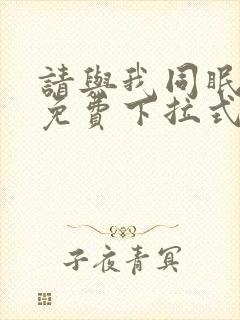 請與我同眠
免費下拉式
子夜青冥